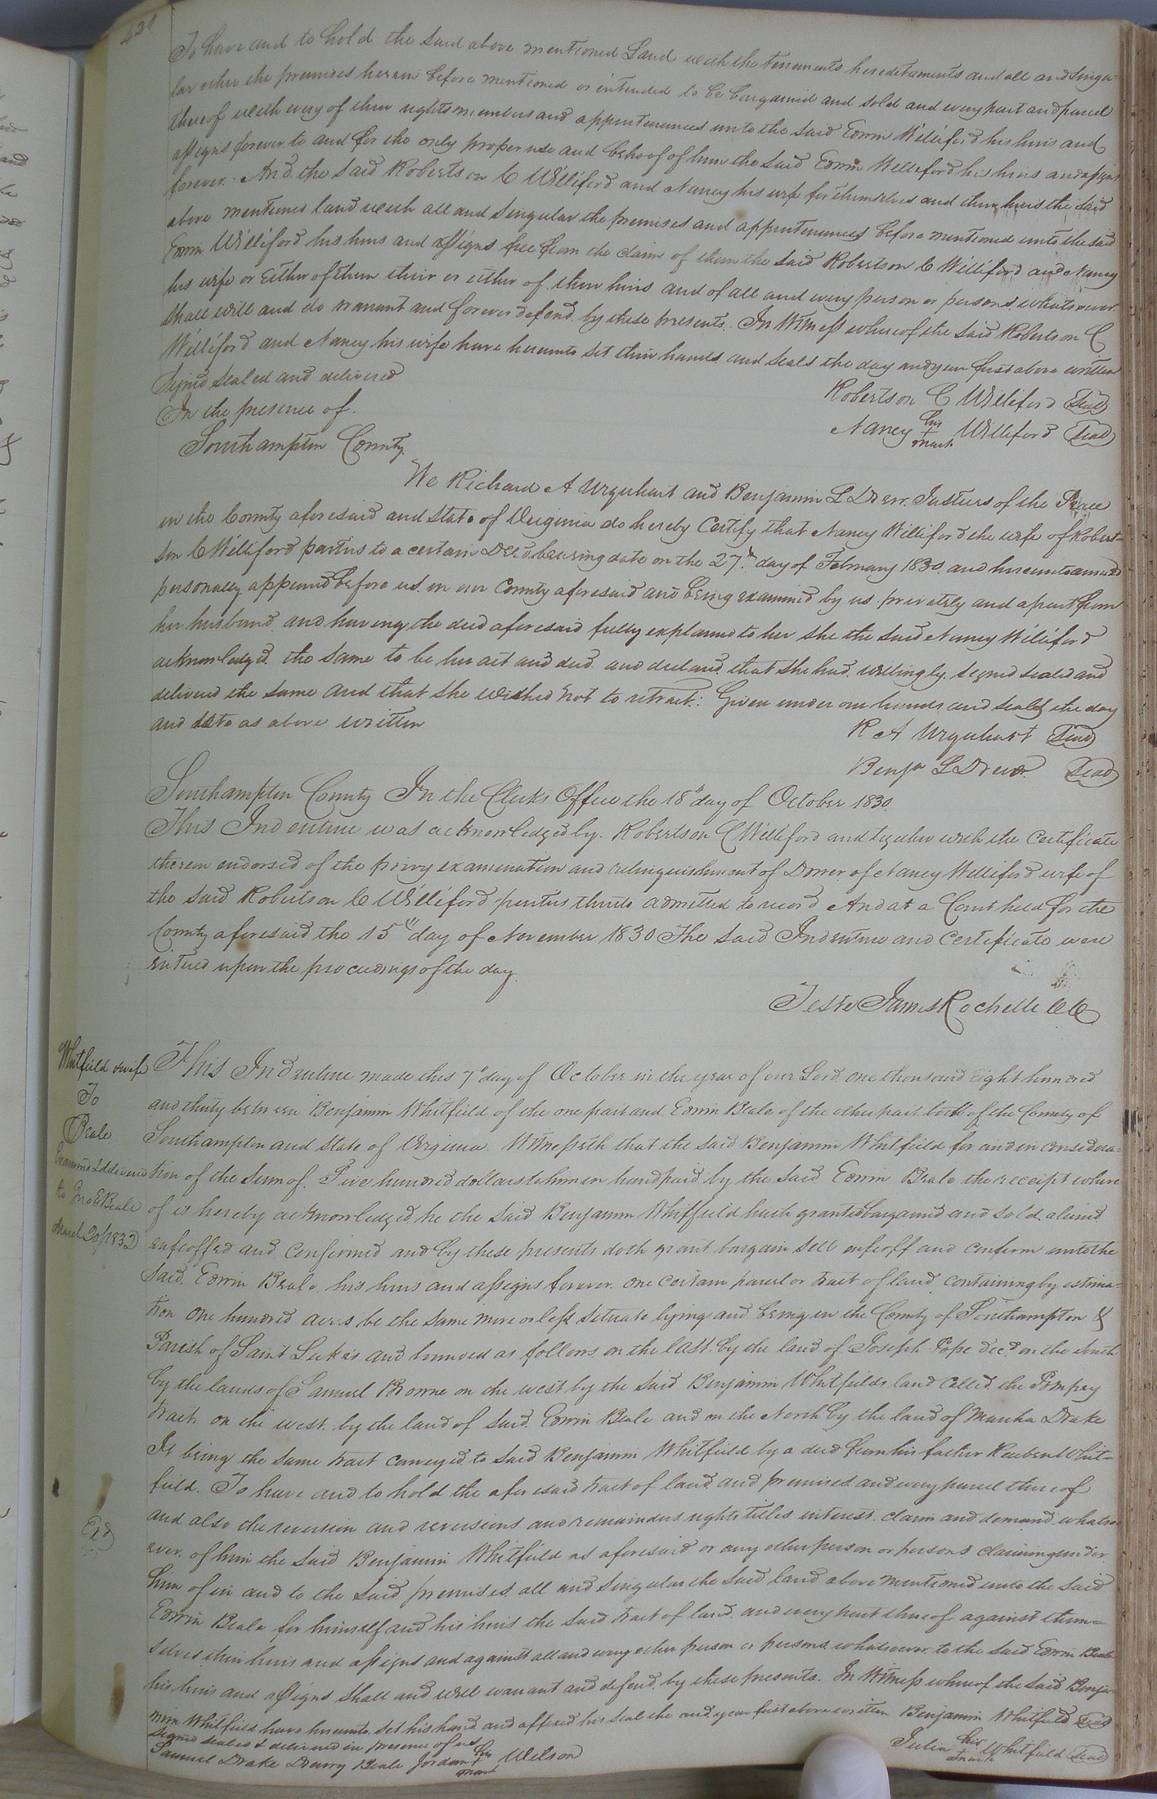 To have and to hold the said above mentioned Land with the tenements hereditaments and all and singu-
lar other the premises herein before mentioned or intended to be bargained and sold and every part and parcel
thereof with every of their rights members and appertenances unto the said Edwin Williford his heirs and
assigns forever to and for the only proper use and behoof of him the said Edwin Williford his heirs and assigns
forever. And the said Robertson C Williford and Nancy his wife for themselves and their heirs the said
above mentioned land with all and singular the premises and appertenances before mentioned unto the said
Edwin Williford his heirs and assigns free from the claim of them the said Robertson C Williford and Nancy
his wife or Either of them their or either of their heirs and of all and every person or persons whatsoever
shall will and do warrant and forever defend by these presents. In Witness whereof the said Robertson C
Williford and Nancy his wife have hereunto set their hands and seals the day and year first above written
Signed sealed and delivered
In the presence of.
Robertson C Williford Seal
Nancy her + mark Williford Seal
Southampton County
We Richard A Urquhart and Benjamin L Drew Justices of the Peace
in the County aforesaid and State of Virginia do hereby Certify that Nancy Williford the wife of Robert-
son C Williford parties to a certain Deed bearing date on the 27th day of February 1830 and hereunto annexed
personally appeared before us in our County aforesaid and being examined by us privately and apart from
her husband and having the deed aforesaid fully explained to her she the said Nancy Williford
acknowledged the same to be her act and deed and declared that she had willingly signed sealed and
delivered the same and that she wished not to retract: Given under our hands and seals the day
and date as above written
R A Urquhart Seal
Benja L Drew Seal
Southampton County In the Clerks Office the 18th day of October 1830
This Indenture was acknowledged by Robertson C Williford and together with the Certificate
thereon endorsed of the privy examination and relinquishment of Dower of Nancy Williford wife of
the said Robertson C Williford parties thereto admitted to record And at a Court held for the
County aforesaid the 15th day of November 1830 The said Indenture and Certificate were
entered upon the proceedings of the day
Teste James Rochelle CC
Whitfield & wife
To
Beale
Examined & delivered
to Jno E Beale
March 20/1832
This Indenture made this 7th day of October in the year of our Lord one thousand eight hundred
and thirty between Benjamin Whitfield of the one part and Edwin Beale of the other part both of the County of
Southampton and State of Virginia Witnesseth that the said Benjamin Whitfield for and in considera-
tion of the sum of Five hundred dollars to him in hand paid by the said Edwin Beale the receipt where
of is hereby acknowledged he the said Benjamin Whitfield hath granted bargained and sold aliened
enfeoffed and confirmed and by these presents doth grant bargain sell enfeoff and confirm unto the
said Edwin Beale his heirs and assigns forever one certain parcel or tract of land containing by estima-
tion one hundred acres be the same more or less situate lying and being in the County of Southampton &
Parish of Saint Lukes and bounded as follows on the East by the land of Joseph Pope decd on the South
by the lands of Samuel Browne on the west by the said Benjamin Whitfields land called the Pompey
tract on the west by the land of said Edwin Beale and on the North by the land of Martha Drake
It being the same tract conveyed to said Benjamin Whitfield by a deed from his father Reuben Whit-
field. To have and to hold the aforesaid tract of land and premises and every parcel thereof
and also the reversion and reversions and remainders rights titles interest claim and demand whatso
ever of him the said Benjamin Whitfield as aforesaid or any other person or persons claiming under
him of in and to the said premises all and singular the said land above mentioned unto the said
Edwin Beale for himself and his heirs the said tract of land and every part thereof against them-
selves their heirs and assigns and against all and every other person or persons whatsoever to the said Edwin Beale
his heirs and assigns shall and will warrant and defend by these presents. In Witness whereof the said Benja-
min Whitfield have hereunto set his hand and affixed his seal the and year first above written Benjamin Whitfield Seal
Signed sealed & delivered in presence of us
Julia his + mark Whitfield Seal
Samuel Drake Drewry Beale Jordan his + mark Wilson